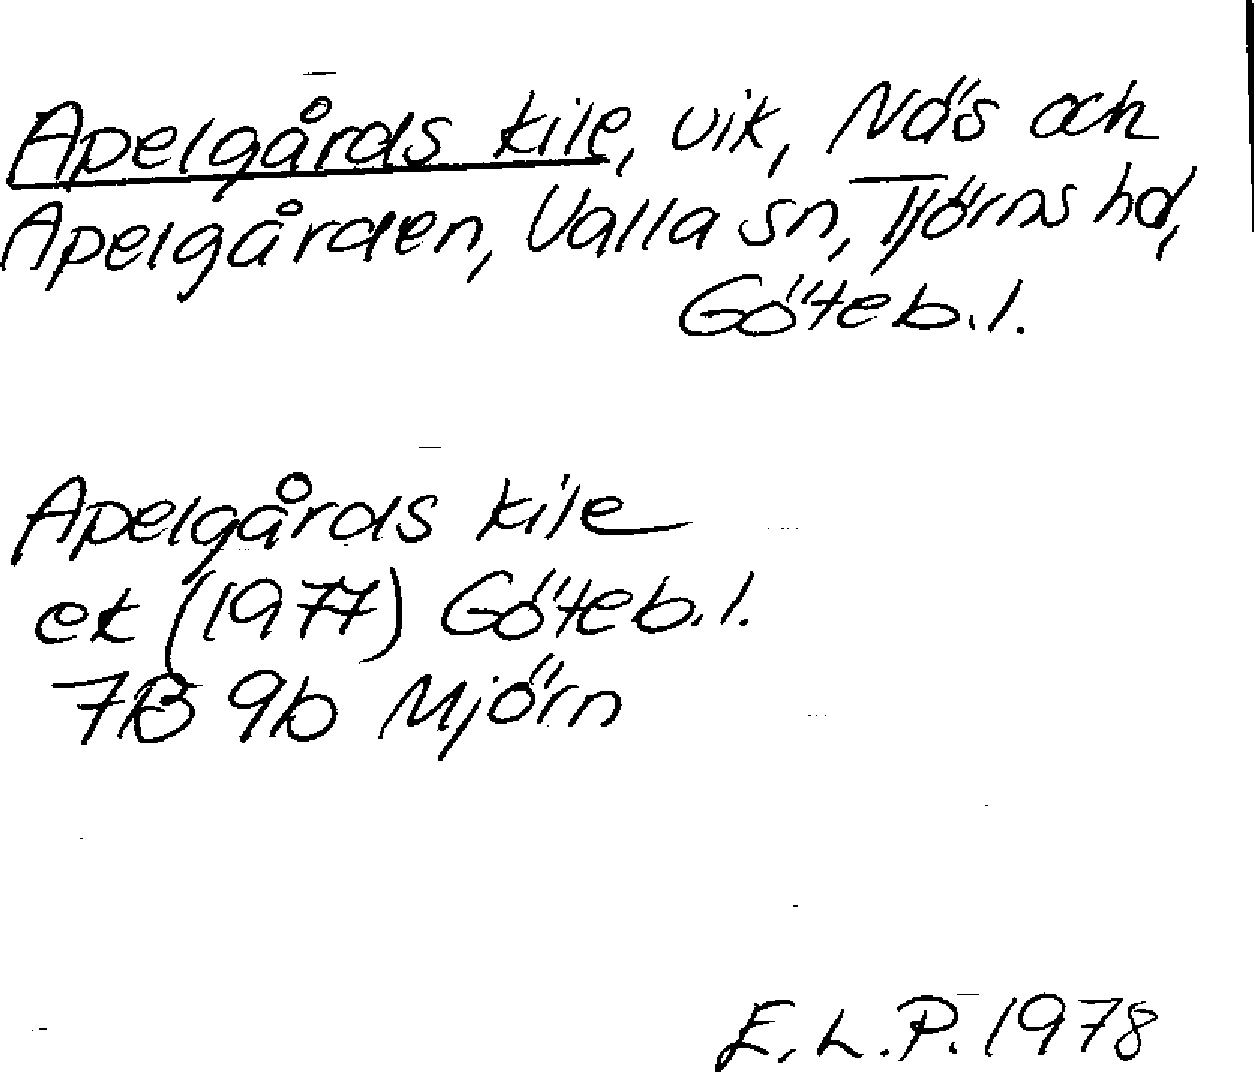 Apelgårds kile, vik, Näs och
Apelgården, Valla sn, Tjörns hd,
Göteb.l.
Apelgårds kile
ek (1977) Göteb.l.
7B 9b Mjörn
E.L.P. 1978